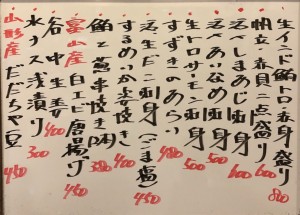 生インド鮪トロ赤身盛り 800
帆立、赤貝二点盛り 600
活〆しまあじ刺身 600
活〆あいなめ刺身 500
生トロサーモン刺身 500
すずきのあらい 480
活生だこ刺身(ごま塩) 450
するめいか姿焼き 400
鮪と葱串焼き 380
富山産 白エビ唐揚げ 450
谷中生姜 400
水ナス浅漬け 300
山形産 だだちゃ豆 450